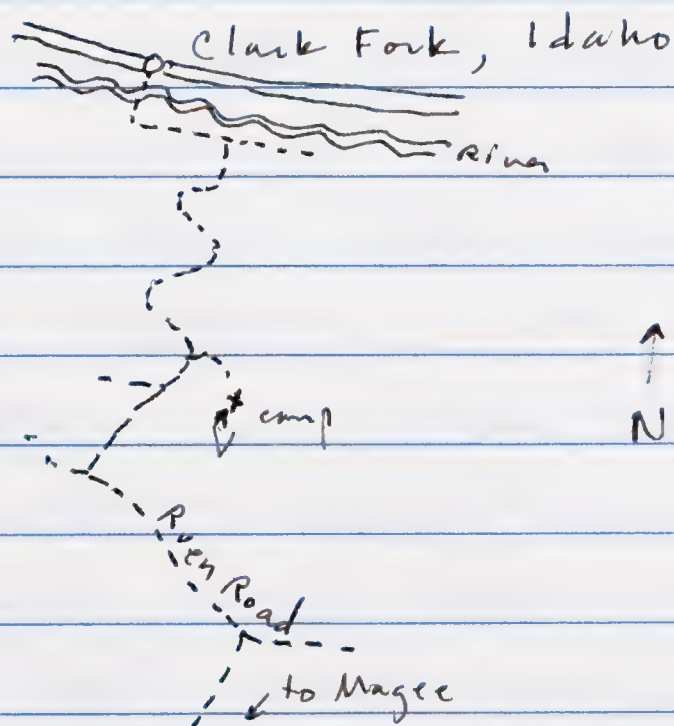 Clark Fork, Idaho
River
camp
N
Road
to Magee